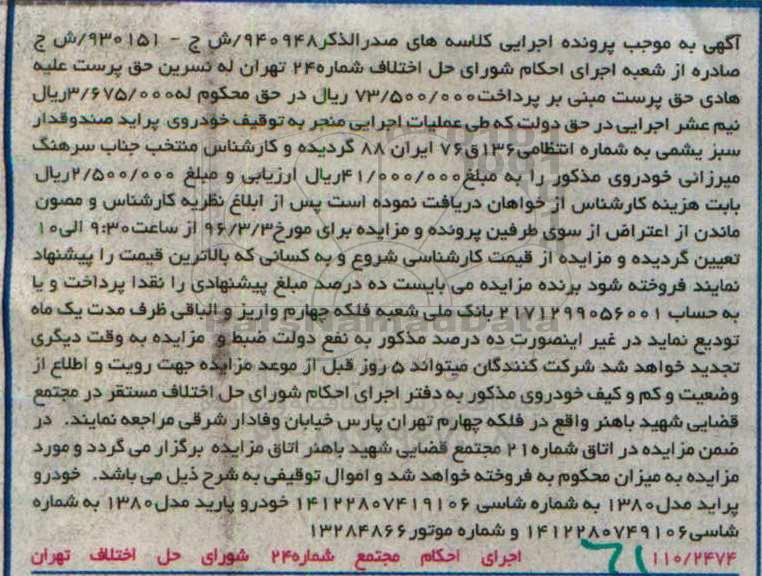 آگهی به موجب پرونده اجرایی کلاسه های صدرالذکر۹۴۰۹۴۸/ش ج - ۹۳۰۱۵۱/ش ج
صادره از شعبه اجرای احکام شورای حل اختلاف شماره۲۴ تهران له نسرین حق پرست علیه
هادی حق پرست مبنی بر پرداخت۷۳/۵۰۰/۰۰۰ ریال در حق محکوم له۳/۶۷۵/۰۰۰ریال
نیم عشر اجرایی در حق دولت که طی عملیات اجرایی منجر به توقیف خودروی پراید صندوقدار
سبز یشمی به شماره انتظامی۱۳۶ق۷۶ ایران ۸۸ گردیده و کارشناس منتخب جناب سرهنگ
میرزائی خودروی مذکور را به مبلغ۴۱/۰۰۰/۰۰۰ریال ارزیابی و مبلغ ۲/۵۰۰/۰۰۰ریال
بابت هزینه کارشناس از خواهان دریافت نموده است پس از ابلاغ نظریه کارشناس و مصون
ماندن از اعتراض از سوی طرفین پرونده و مزایده برای مورخ۹۶/۳/۳ از ساعت۹:۳۰ الی۱۰
تعیین گردیده و مزایده از قیمت کارشناسی شروع و به کسانی که بالاترین قیمت را پیشنهاد
نمایند فروخته شود برنده مزایده می بایست ده درصد مبلغ پیشنهادی را نقدا پرداخت و یا
به حساب ۲۱۷۱۲۹۹۰۵۶۰۰۱ بانک ملی شعبه فلکه چهارم واریز و الباقی ظرف مدت یک ماه
تودیع نماید در غیر اینصورت ده درصد مذکور به نفع دولت ضبط و مزایده به وقت دیگری
تجدید خواهد شد شرکت کنندگان میتواند ۵ روز قبل از موعد مزایده جهت رویت و اطلاع از
وضعیت و کم و کیف خودروی مذکور به دفتر اجرای احکام شورای حل اختلاف مستقر در مجتمع
قضایی شهید باهنر واقع در فلکه چهارم تهران پارس خیابان وفادار شرقی مراجعه نمایند. در
ضمن مزایده در اتاق شماره۲۱ مجتمع قضایی شهید باهنر اتاق مزایده برگزار می گردد و مورد
مزایده به میزان محکوم به فروخته خواهد شد و اموال توقیفی به شرح ذیل می باشد. خودرو
پراید مدل۱۳۸۰ به شماره شاسی ۱۴۱۲۲۸۰۷۴۱۹۱۰۶ خودرو پارید مدل۱۳۸۰ به شماره
شاسی۱۴۱۲۲۸۰۷۴۹۱۰۶ و شماره موتور۱۳۲۸۴۸۶۶
۱۱۰/۲۴۷۴ اجرای احکام مجتمع شماره۲۴ شورای حل اختلاف تهران
ParsNamadData